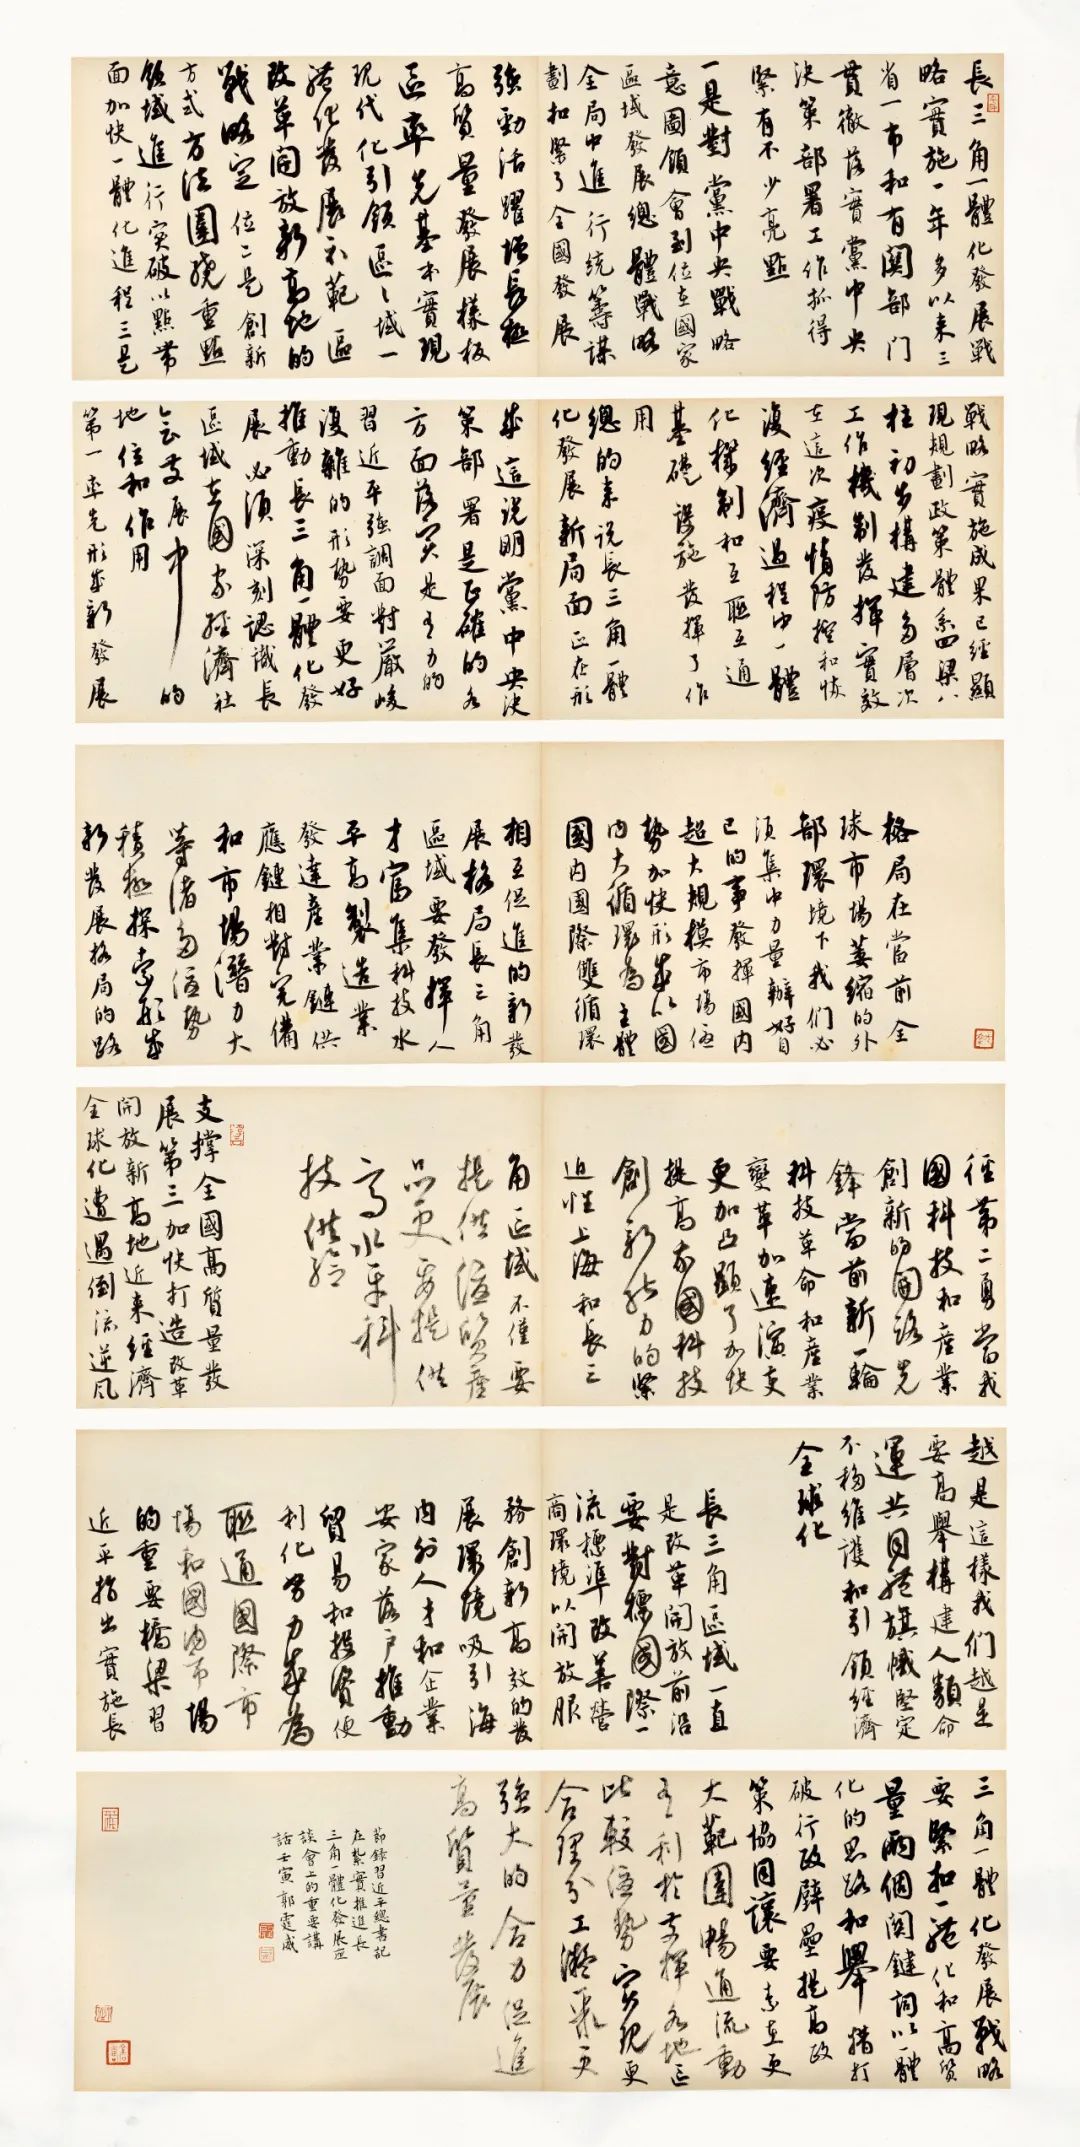 長三角一體化發展戰
略實施一年多以来三
省一市和有関部门
貫徹落實黨中央
決策部署工作抓得
緊有不少亮點
一是對黨中央戰略
意圖領會到位在國家
區域發展總體戰略
全局中進行统籌謀
劃扣緊了全國發展
強勁活躍增長極
高質量發展樣板
區率先基本實現
现代化引領區區域一
體化發展示範區
改革開放新高地的
戰略定位二是創新
方式方法圍繞重點
領域進行突破以點帶
面加快一體化進程三是
戰略實施成果已經顯
現規劃政策體系四梁八
柱初步構建多層次
工作機制發揮實效
在這次疫情防控和恢
復經濟過程中一體
化機制和互聯互通
基礎設施發揮了作
用
總的来说長三角一體
化發展新局面正在形
成這说明黨中央決
策部署是正確的各
方面落实是有力的
習近平強調面對嚴峻
復雜的形势要更好
推動長三角一體化發
展必須深刻認識長
區域在國家經濟社
會發展中的
地位和作用
第一率先形成新發展
格局在當前全
球市場萎缩的外
部環境下我们必
須集中力量辦好自
己的事發揮國内
超大規模市場優
势加快形成以國
内大循環為主體
國内國際雙循環
相互促進的新發
展格局長三角
區域要發揮人
才富集科技水
平高製造業
發達産業鏈供
應鏈相對完備
和市場潛力大
等诸多優势
積極探索形成
新發展格局的路
徑第二勇當我
國科技和産業
創新的開路先
鋒當前新一輪
科技革命和産業
變革加速演变
更加凸顯了加快
提高我國科技
創新能力的緊
迫性上海和長三
角區域不僅要
提供優質産
品更要提供
高水平科
技供给
支撑全國高質量發
展第三加快打造改革
開放新高地近来經濟
全球化遭遇倒流逆风
越是這樣我们越是
要高舉構建人類命
運共同體旗幟堅定
不移維護和引領經濟
全球化
長三角區域一直
是改革開放前沿
要對標國際一
流標準改善營
商環境以開放服
務創新高效的發
展環境吸引海
内外人才和企業
安家落户推動
貿易和投資便
利化努力成為
聯通國際市
場和國内市場
的重要橋梁習
近平指出實施長
三角一體化發展戰略
要緊扣一體化和高質
量兩個関鍵詞以一體
化的思路和舉措打
破行政壁壘提高政
策協同讓要素在更
大範圍暢通流動
有利於發揮各地區
比較優势实现更
合理分工凝聚更
強大的合力促進
高質量發展
節錄習近平總書記
在紮實推進長
三角一體化發展座
談會上的重要講
話壬寅郭雯成